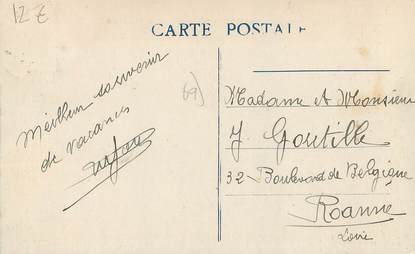 12 E
CARTE POSTALE
69)
Meilleur souvenir
de vacances
Madame et Monsieur
J. Goutille
32 Boulevard de Belgique
Roanne
Loire